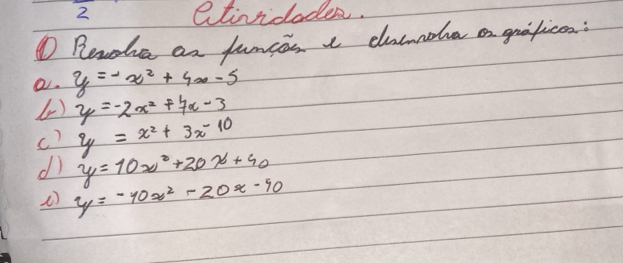 2 Atividades.
① Resolva as função e desenvolva os gráficos:
a. y = - x² + 4x - 5
b) y = -2x² + 7x - 3
c) y = x² + 3x - 10
d) y = 10x² + 20x + 40
e) y = -10x² - 20x - 40